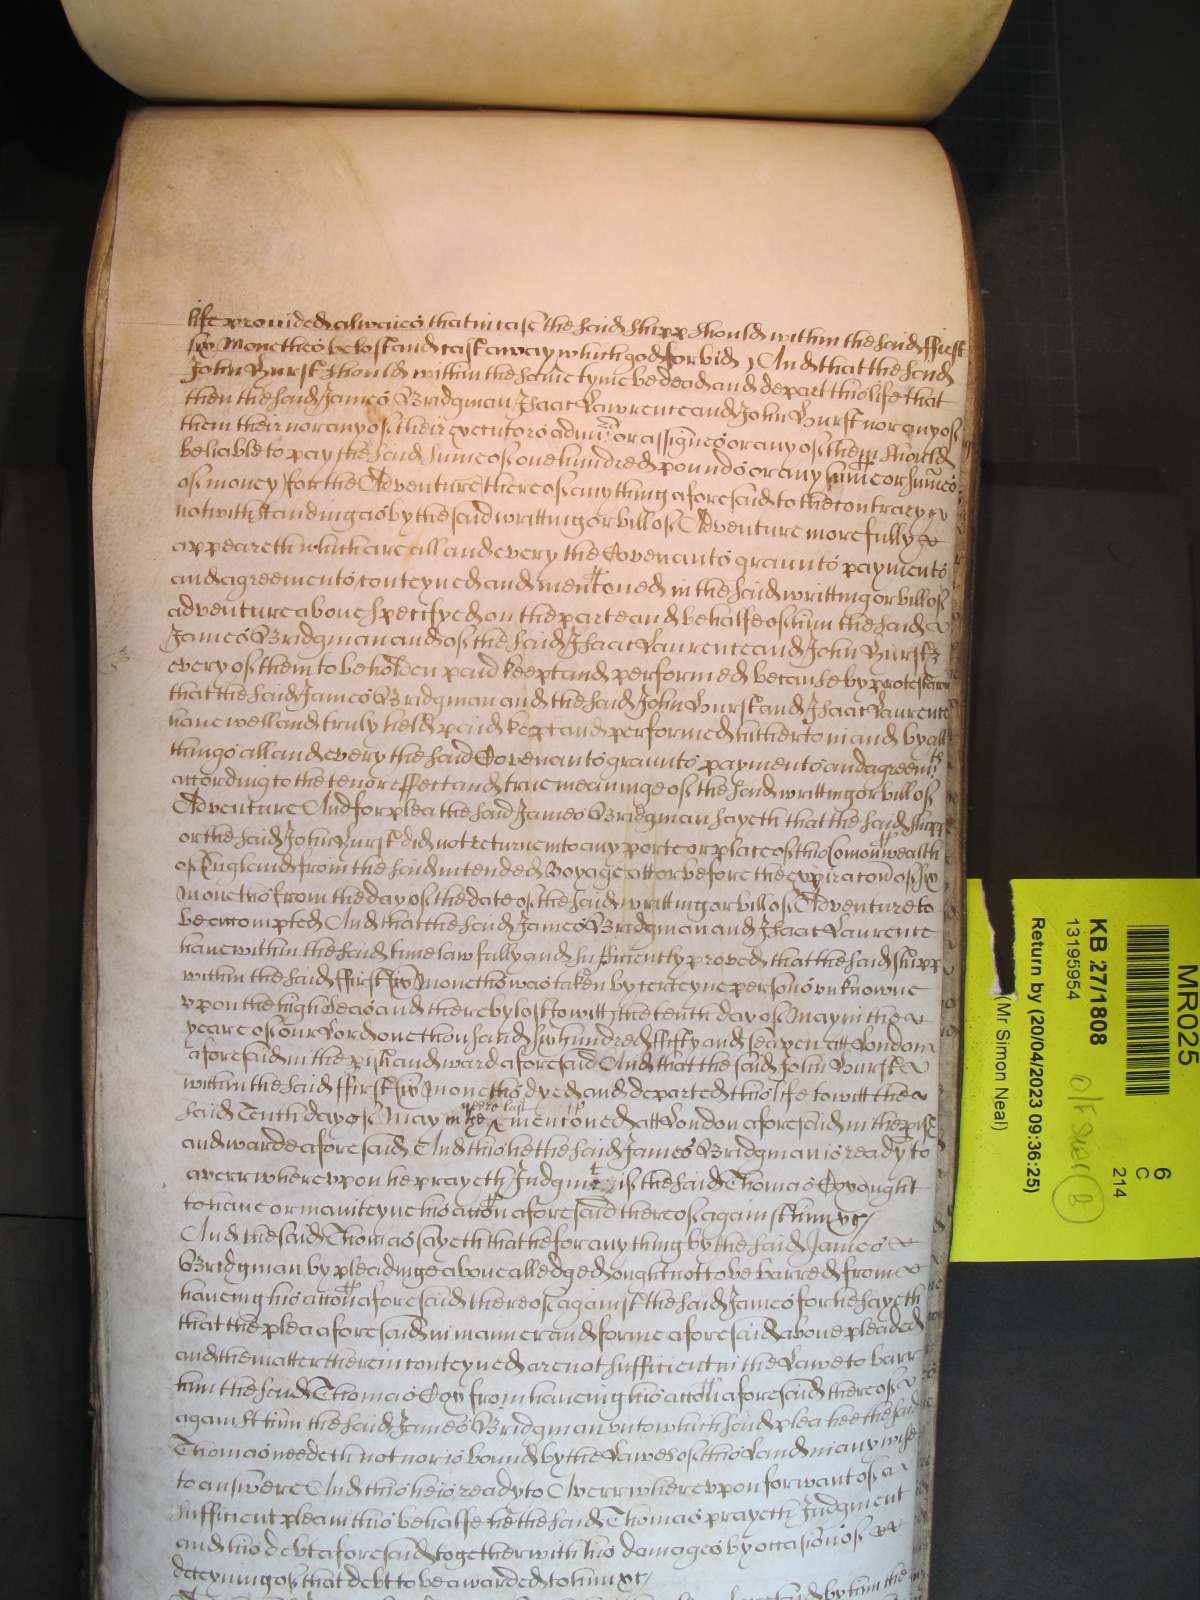 life provided alwaies that in case the said Shipp should within the said ffirst
six Monethes be lost and cast away which god forbid, And that the said
John Hurst should within the same tyme be dead and depart this life that
then the said James Bridgman Isaac Lawrence and John Hurst nor any of
them their nor any of their executors admrs: or assignes or any of them should
be liable to pay the said sume of one hundred pounds or any sume or sumes
of money for the Adventure thereof any thing aforesaid to the contrary
notwithstanding as by the said writting or bill of Adventure more fully
appeareth which are all and every the Covenants graunts payments
and agreements conteyned and mentioned in the said writting or bill of
adventure above specifyed on the parte and behalfe of him the said
James Bridgman and of the said Isaac Laurence and John Hurst
every of them to be holden paid keept and performed because by protestacon
that the said James Bridgman and the said John Hurst and Isaac Laurence
have well and truly held paid kept and performed hitherto in and by all
things all and every the said Covenants graunts payments and agreemts
according to the tenor effect and true meaninge of the said writting or bill of
Adventure And for plea the said James Bridgman sayeth that the said shipp
or the said John Hurst did not returne into any porte or place of this Comonwealth
of England from the said intended Voyage att or before the expiracon of six
Moneths from the day of the date of the said writting or bill of Adventure to
be accompted And that the said James Bridgman and Isaac Laurence
have within the said time lawfully and sufficiently proved that the said shipp
within the said ffirst six Moneths was taken by certeyne persons unknowne
upon the high Seas and thereby lost to witt the tenth day of May in the
yeare of our Lord one thousand six hundred fifty and seaven att London
aforesaid in the pish and ward aforesaid And that the said John Hurst
within the said ffirst six Moneths dyed and departed this life to witt the
said Tenth day of May in the yeare last mentioned att London aforesaid in the pish
and warde aforesaid And this he the said James Bridgman is ready to
averr whereupon he prayeth Judgmt: if the said Thomas Cox ought
to have or manteyne his accon aforesaid thereof against him &c/
And the said Thomas sayeth that he for any thing by the said James
Bridgman by pleadinge above alledged ought not to be barred from
haveing his accon aforesaid thereof against the said James for he sayeth
that the plea aforesaid in manner and forme aforesaid above pleaded
and the matter therein conteyned are not sufficient in the Lawe to barr
him the said Thomas Cox from haveing his accon aforesaid thereof
against him the said James Bridgman unto which said plea hee the said
Thomas needeth not nor is bound by the Lawes of this Land in any wise
to answere And this he is ready to Averr whereupon for want of a
sufficient plea in this behalfe he the said Thomas prayeth Judgment
and his debt aforesaid together with his damages by occasion of
deteyning of that debt to be awarded to him &c/
MR025
KB 27/1808
13195954
Return by (20/04/2023 09:36:25)
(Mr Simon Neal)
6
C
214